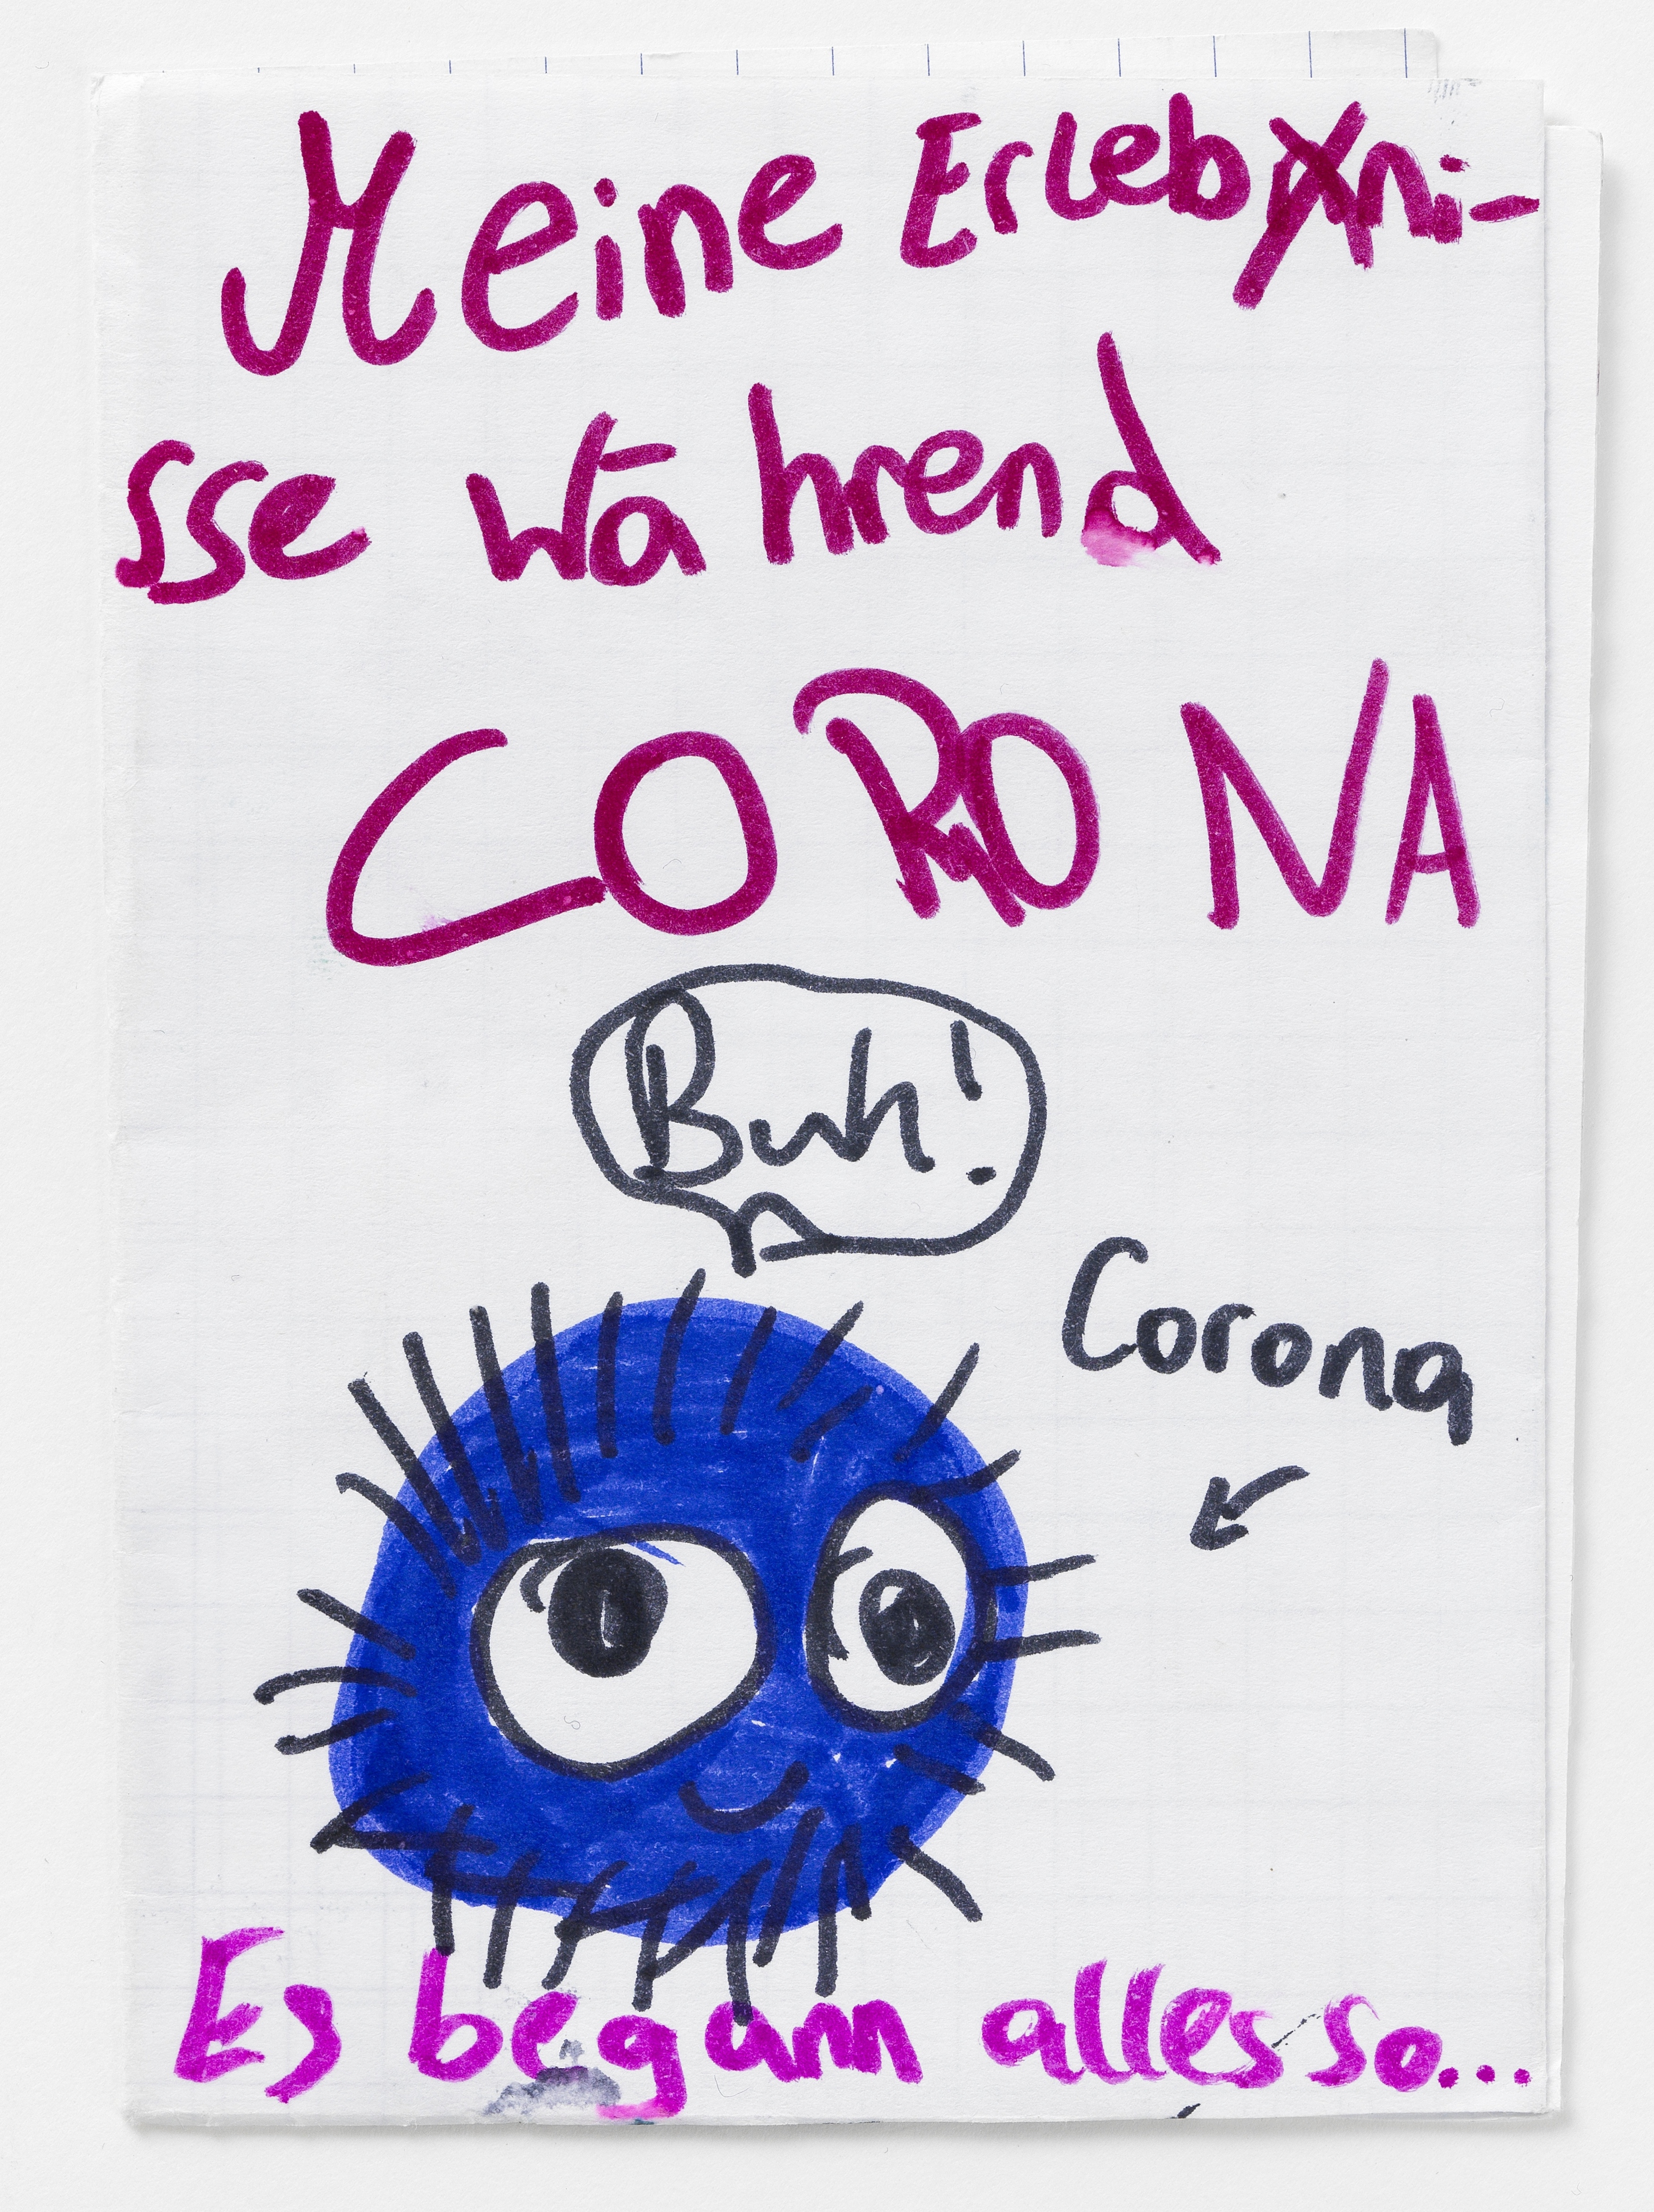 Meine Erlebni-
sse während
CORONA
Buh!
Corona
Es begann alles so...